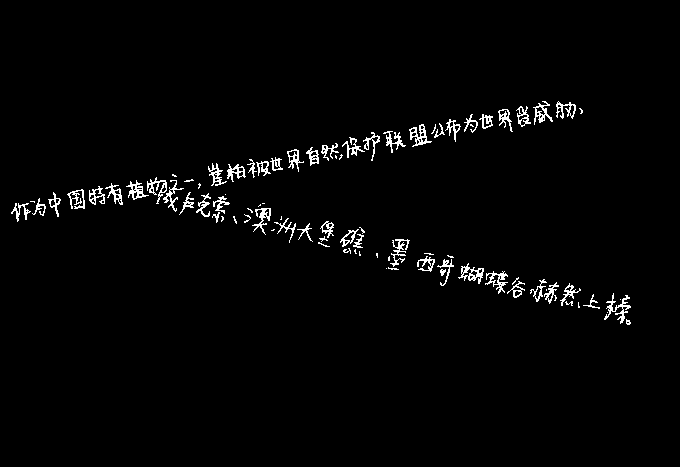 作为中国特有植物之一,崖柏被世界自然保护联盟公布为世界受威胁、
城卢克索、澳洲大堡礁、墨西哥蝴蝶谷赫然上榜。